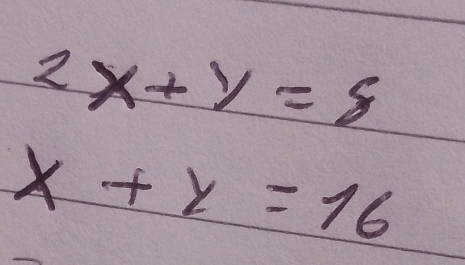 2x + y = 8
x + y = 16